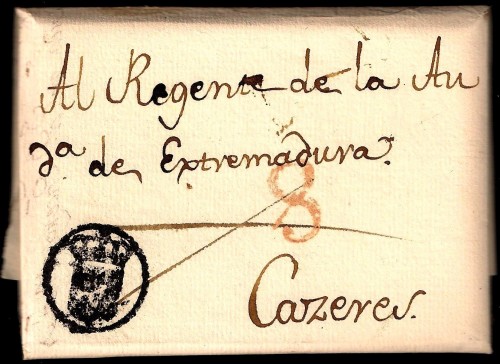 Al Regente de la Au
da de Extremadura.
8
Cazeres.